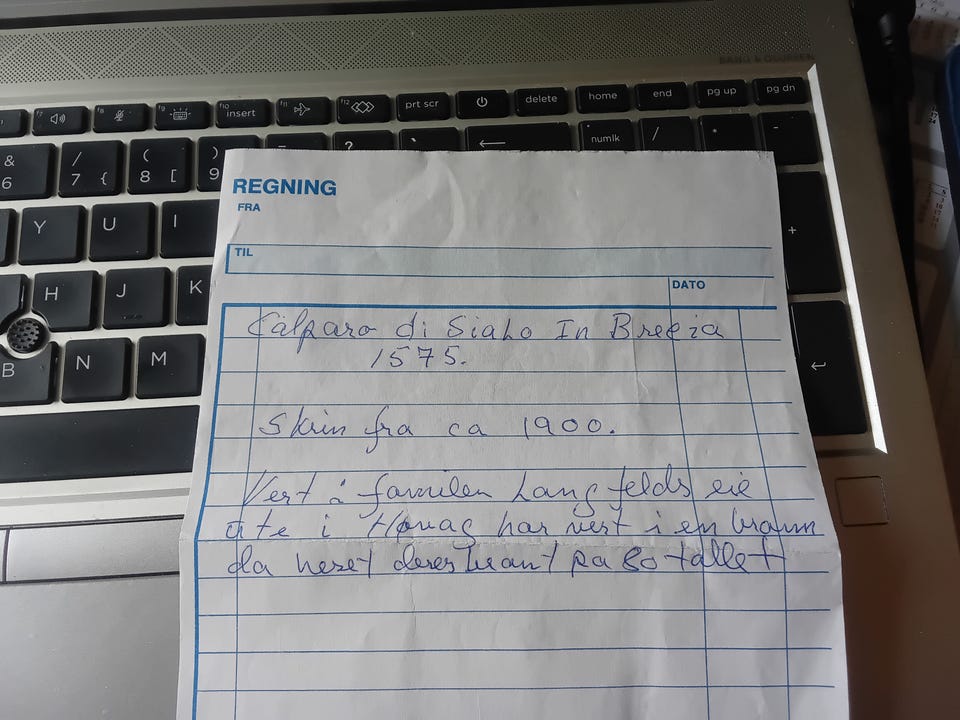 BANG & OLUFSEN
f8
f9
f10 insert
f11
f12
prt scr
delete
home
end
pg up
pg dn
& 6
/ 7 {
( 8 [
) 9
?
numlk
/
*
-
Y U I
+
H J K
B N M
REGNING
FRA
TIL
DATO
Gàlparo di Sialo In Brecia
1575.
Skrin fra ca 1900.
Vert i familen Langfelds eie
ute i Høvåg har vert i en brann
da heset deres brant på 80 tallet